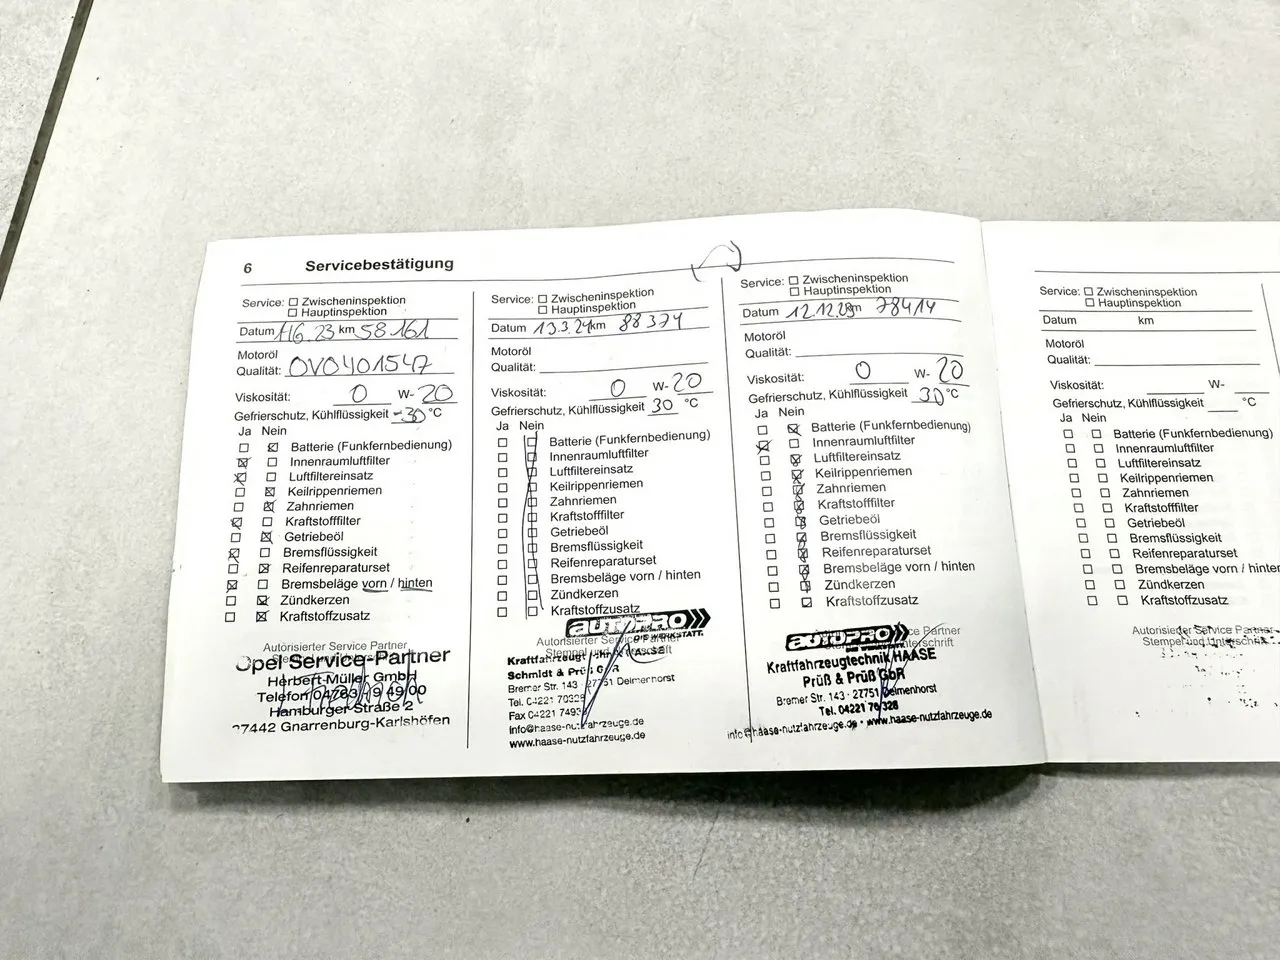 6 Servicebestätigung
Service: Zwischeninspektion
Hauptinspektion
Datum 58.161 km
Motoröl
Qualität: OVO401547
Viskosität: 0 W-20
Gefrierschutz, Kühlflüssigkeit -30 °C
Ja Nein
Batterie (Funkfernbedienung)
Innenraumluftfilter
Luftfiltereinsatz
Keilrippenriemen
Zahnriemen
Kraftstofffilter
Getriebeöl
Bremsflüssigkeit
Reifenreparaturset
Bremsbeläge vorn / hinten
Zündkerzen
Kraftstoffzusatz
Autorisierter Service Partner
Opel Service-Partner
Herbert Müller GmbH
Telefon 04763 / 9 49 00
Hamburger Straße 2
27442 Gnarrenburg-Karlshöfen
Service: Zwischeninspektion
Hauptinspektion
Datum 13.3.24 km 88374
Motoröl
Qualität:
Viskosität: 0 W-20
Gefrierschutz, Kühlflüssigkeit 30 °C
Ja Nein
Batterie (Funkfernbedienung)
Innenraumluftfilter
Luftfiltereinsatz
Keilrippenriemen
Zahnriemen
Kraftstofffilter
Getriebeöl
Bremsflüssigkeit
Reifenreparaturset
Bremsbeläge vorn / hinten
Zündkerzen
Kraftstoffzusatz
AUTOPRO
DIE WERKSTATT.
Autorisierter Service Partner
Kraftfahrzeugtechnik HAASE
Schmidt & Prüß GbR
Bremer Str. 143 · 27751 Delmenhorst
Tel. 04221 70328
Fax 04221
info@haase-nutzfahrzeuge.de
www.haase-nutzfahrzeuge.de
Service: Zwischeninspektion
Hauptinspektion
Datum 12.12.23 km 78414
Motoröl
Qualität:
Viskosität: 0 W-20
Gefrierschutz, Kühlflüssigkeit 30 °C
Ja Nein
Batterie (Funkfernbedienung)
Innenraumluftfilter
Luftfiltereinsatz
Keilrippenriemen
Zahnriemen
Kraftstofffilter
Getriebeöl
Bremsflüssigkeit
Reifenreparaturset
Bremsbeläge vorn / hinten
Zündkerzen
Kraftstoffzusatz
AUTOPRO
DIE WERKSTATT.
Service Partner
Kraftfahrzeugtechnik HAASE
Prüß & Prüß GbR
Bremer Str. 143 · 27751 Delmenhorst
Tel. 04221 70328
info@haase-nutzfahrzeuge.de · www.haase-nutzfahrzeuge.de
Service: Zwischeninspektion
Hauptinspektion
Datum km
Motoröl
Qualität:
Viskosität: W-
Gefrierschutz, Kühlflüssigkeit °C
Ja Nein
Batterie (Funkfernbedienung)
Innenraumluftfilter
Luftfiltereinsatz
Keilrippenriemen
Zahnriemen
Kraftstofffilter
Getriebeöl
Bremsflüssigkeit
Reifenreparaturset
Bremsbeläge vorn / hinten
Zündkerzen
Kraftstoffzusatz
Autorisierter Service Partner
Stempel und Unterschrift